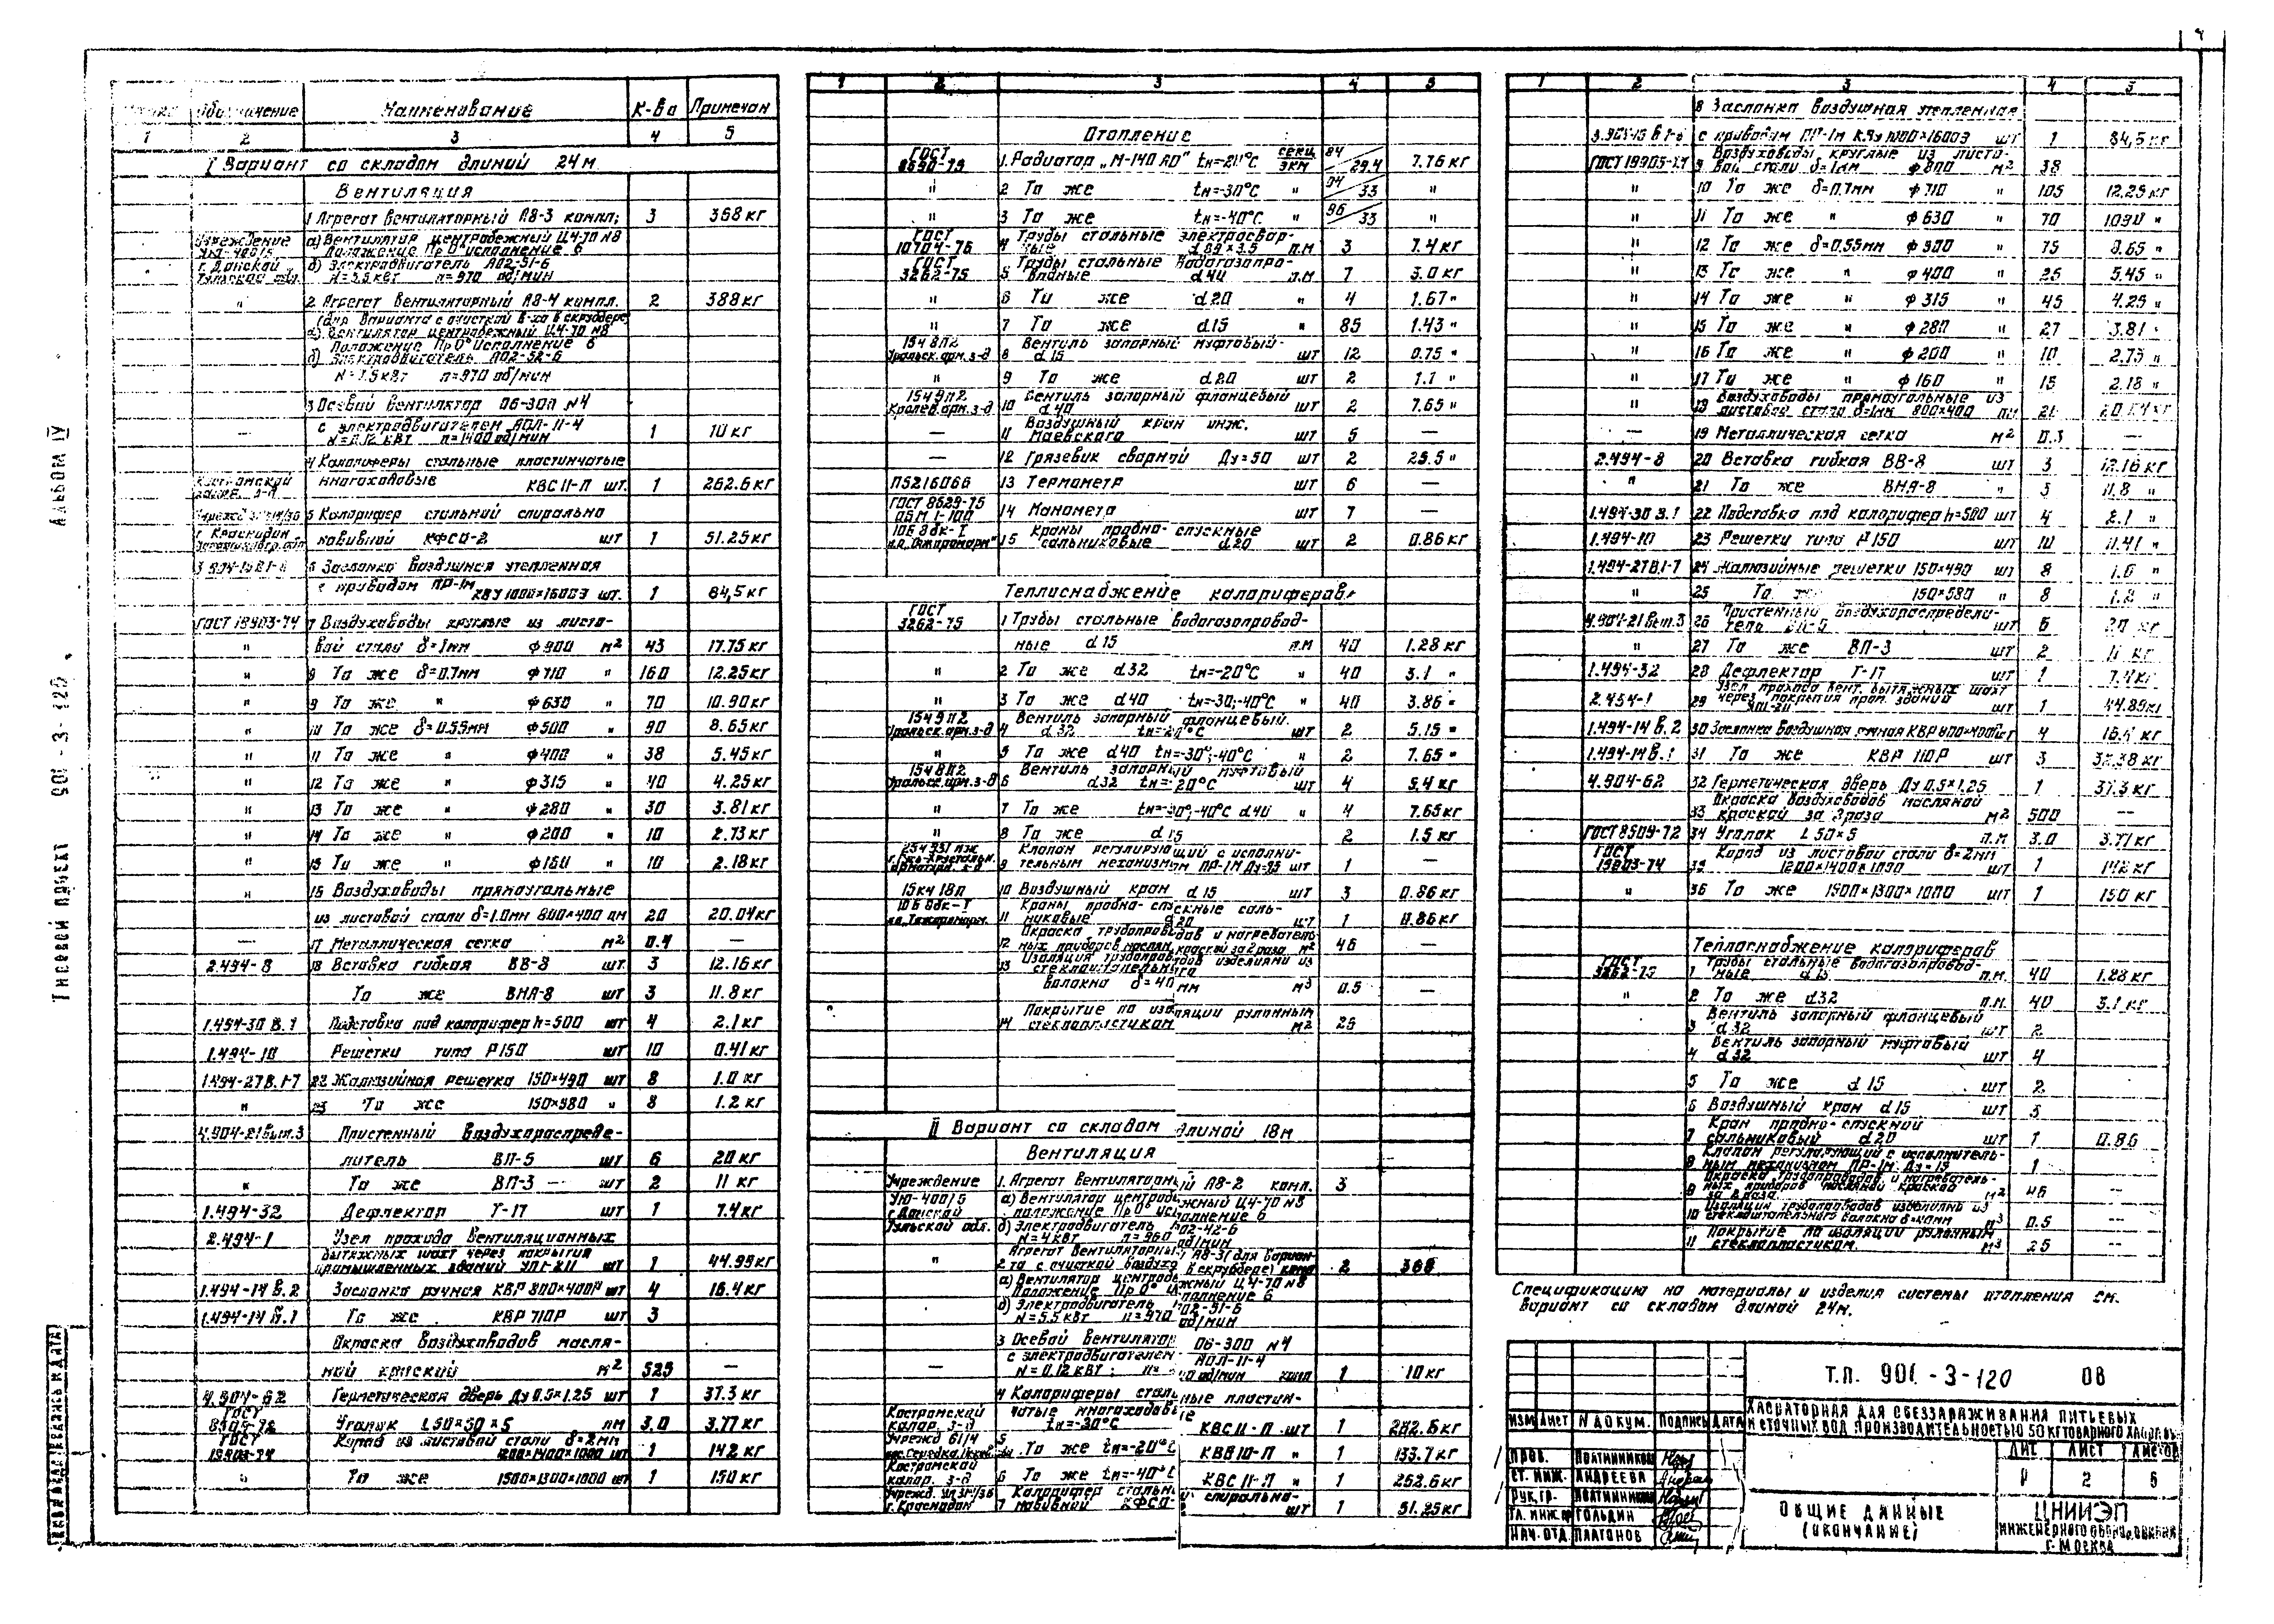 4
Альбом IV
Типовой проект 901-3-120
Обозначение Наименование К-во Примечан
1 2 3 4 5
I Вариант со складом длиной 24м
Вентиляция
1 Агрегат вентиляторный А8-3 компл; 3 368 кг
Учреждение а) Вентилятор центробежный Ц4-70 №8
Положение Пр 0° исполнение 6
г. Донской б) Электродвигатель АО2-51-6
Тульской обл. N=5.5 кВт n=970 об/мин
" 2 Агрегат вентиляторный А8-4 компл. 2 388 кг
(для варианта с очисткой в-ха в скруббере)
а) Вентилятор центробежный Ц4-70 №8
Положение Пр 0° исполнение 6
б) Электродвигатель АО2-52-6
N=7.5 кВт n=970 об/мин
3 Осевой вентилятор 06-300 №4
с электродвигателем АОЛ-11-4
— N=0.12 кВт n=1400 об/мин 1 10 кг
4 Калориферы стальные пластинчатые
многоходовые КВС11-П шт. 1 262.6 кг
5 Калорифер стальной спирально
навивной КФСО-2 шт 1 51.25 кг
6 Заслонка воздушная утепленная
с приводом ПР-1м КВУ 1000×1600Э шт. 1 84,5 кг
ГОСТ 19903-74 7 Воздуховоды круглые из листо-
" вой стали δ=1мм ф900 м² 43 17.75 кг
" 8 То же δ=0.7мм ф710 " 160 12.25 кг
" 9 То же " ф630 " 70 10.90 кг
" 10 То же δ=0.55мм ф500 " 90 8.65 кг
" 11 То же " ф400 " 38 5.45 кг
" 12 То же " ф315 " 40 4.25 кг
" 13 То же " ф280 " 30 3.81 кг
" 14 То же " ф200 " 10 2.73 кг
" 15 То же " ф160 " 10 2.18 кг
" 16 Воздуховоды прямоугольные
из листовой стали δ=1.0мм 800×400 пм 20 20.04 кг
— 17 Металлическая сетка м² 0.4 —
2.494-8 18 Вставка гибкая ВВ-8 шт. 3 12.16 кг
То же ВНА-8 шт 3 11.8 кг
1.494-30 В.1 Подставка под калорифер h=500 шт 4 2.1 кг
1.494-10 Решетки типа Р150 шт 10 0.41 кг
1.494-27 В.1-7 22 Жалюзийная решетка 150×490 шт 8 1.0 кг
" 23 То же 150×580 " 8 1.2 кг
4.904-21 Вып.3 Пристенный воздухораспреде-
литель ВП-5 шт 6 20 кг
" То же ВП-3 шт 2 11 кг
1.494-32 Дефлектор Т-17 шт 1 7.4 кг
2.494-1 Узел прохода вентиляционных
вытяжных шахт через покрытия
промышленных зданий шт 1 44.95 кг
1.494-14 В.2 Заслонка ручная КВР 800×400Р шт 4 16.4 кг
1.494-14 В.1 То же КВР 710Р шт 3
Окраска воздуховодов масля-
ной краской м² 525 —
4.904-62 Герметическая дверь Ду 0.5×1.25 шт 1 37.3 кг
ГОСТ
8509-72 Уголок L50×50×5 пм 3.0 3.77 кг
ГОСТ
19903-74 Короб из листовой стали δ=2мм
1200×1400×1000 шт 1 142 кг
" То же 1500×1300×1000 шт 1 150 кг
1 2 3 4 5
Отопление
ГОСТ
8690-75 1. Радиатор „М-140 АО" tн=-20°С секц/экм 84/29.4 7.76 кг
" 2 То же tн=-30°С " 94/33 "
" 3 То же tн=-40°С " 96/33 "
ГОСТ
10704-76 4 Трубы стальные электросвар-
ные d 89×3.5 п.м 3 7.4 кг
ГОСТ
3262-75 5 Трубы стальные водогазопро-
водные d40 п.м 7 3.0 кг
" 6 То же d20 " 4 1.67 "
" 7 То же d.15 " 85 1.43 "
15ч8п2
Уральск.арм.з-д 8 Вентиль запорный муфтовый-
d 15 шт 12 0.75 "
" 9 То же d20 шт 2 1.1 "
15ч9п2 10 Вентиль запорный фланцевый
d40 шт 2 7.65 "
— 11 Воздушный кран инж.
Маевского шт 5 —
— 12 Грязевик сварной Ду=50 шт 2 25.5 "
П5216066 13 Термометр шт 6 —
ГОСТ 8625-75
ОБМ 1-100 14 Манометр шт 7 —
10Б8бк-I 15 Краны пробно-спускные
сальниковые d20 шт 2 0.86 кг
Теплоснабжение калориферов
ГОСТ
3262-75 1 Трубы стальные водогазопровод-
ные d15 п.м 40 1.28 кг
" 2 То же d32 tн=-20°С " 40 3.1 "
" 3 То же d40 tн=-30;-40°С " 40 3.86 "
15ч9п2
Уральск.арм.з-д 4 Вентиль запорный фланцевый.
d32 tн=-20°С шт 2 5.15 "
" 5 То же d40 tн=-30°;-40°С " 2 7.65 "
15ч8п2
Уральск.арм.з-д 6 Вентиль запорный муфтовый
d32 tн=-20°С шт 4 5.4 кг
" 7 То же tн=-30°;-40°С d40 " 4 7.65 кг
" 8 То же d15 2 1.5 кг
9 Клапан регулирующий с исполни-
тельным механизмом ПР-1М Ду=15 шт 1 —
15кч18п 10 Воздушный кран d15 шт 3 0.86 кг
10Б8бк-I 11 Краны пробно-спускные саль-
никовые d20 шт 1 0.86 кг
12 Окраска трубопроводов и нагреватель-
ных приборов маслян. краской за 2 раза м² 46 —
13 Изоляция трубопроводов изделиями из
стекло штапельного
волокна δ=40 мм м³ 0.5 —
14 Покрытие по изоляции рулонным
стеклопластиком м² 25
II Вариант со складом длиной 18м
Вентиляция
Учреждение 1. Агрегат вентиляторный А8-2 комп. 3
Ую-400/5 а) Вентилятор центробежный Ц4-70 №8
г. Донской положение Пр 0° исполнение 6
Тульской обл. б) Электродвигатель АО2-42-6
N=4 кВт n=960 об/мин
" 2 Агрегат вентиляторный А8-3 (для вариан-
та с очисткой воздуха в скруббере) комп 2 368
а) Вентилятор центробежный Ц4-70 №8
Положение Пр 0° исполнение 6
б) Электродвигатель АО2-51-6
N=5.5 кВт n=970 об/мин
3 Осевой вентилятор 06-300 №4
с электродвигателем АОЛ-11-4
— N=0.12 кВт; об/мин комп 1 10 кг
4 Калориферы стальные пластин-
Костромской чатые многоходовые
калор. з-д tн=-30°С КВС11-П шт 1 262.6 кг
5 То же tн=-20°С КВВ10-П " 1 133.7 кг
Костромской
калор. з-д 6 То же tн=-40°С КВС11-П " 1 262.6 кг
7 Калорифер стальной спирально-
навивной КФСО- шт 1 51.25 кг
1 2 3 4 5
8 Заслонка воздушная утепленная
с приводом ПР-1м КВУ 1000×1600Э шт 1 84,5 кг
ГОСТ 19903-74 9 Воздуховоды круглые из листо-
вой стали δ=1мм ф800 м² 38
" 10 То же δ=0.7мм ф710 " 105 12.25 кг
" 11 То же " ф630 " 70 10.90 "
" 12 То же δ=0.55мм ф500 " 75 8.65 "
" 13 То же " ф400 " 26 5.45 "
" 14 То же " ф315 " 45 4.25 "
" 15 То же " ф280 " 27 3.81 "
" 16 То же " ф200 " 10 2.73 "
" 17 То же " ф160 " 15 2.18 "
" 18 Воздуховоды прямоугольные из
листовой стали δ=1мм 800×400 пм 21 20.04 кг
— 19 Металлическая сетка м² 0.3 —
2.494-8 20 Вставка гибкая ВВ-8 шт 3 12.16 кг
" 21 То же ВНА-8 " 3 11.8 "
1.494-30 В.1 22 Подставка под калорифер h=500 шт 4 2.1 "
1.494-10 23 Решетки типа Р150 шт 10 0.41 "
1.494-27 В.1-7 24 Жалюзийные решетки 150×490 шт 8 1.0 "
" 25 То же 150×580 " 8 1.2 "
4.904-21 Вып.3 26 Пристенный воздухораспредели-
тель ВП-5 шт 6 20 кг
" 27 То же ВП-3 шт 2 11 кг
1.494-32 28 Дефлектор Т-17 шт 1 7.4 кг
29 Узел прохода вент. вытяжных шахт
через покрытия пром. зданий шт 1
1.494-14 В.2 30 Заслонка воздушная ручная КВР 800×400 шт 4 16.4 кг
1.494-14 В.1 31 То же КВР 710Р шт 3
4.904-62 32 Герметическая дверь Ду 0.5×1.25 1 37.3 кг
33 Окраска воздуховодов масляной
краской за 2 раза м² 500 —
ГОСТ 8509-72 34 Уголок L50×5 п.м 3.0 3.77 кг
ГОСТ
19903-74 35 Короб из листовой стали δ=2мм
1200×1400×1000 шт 1 142 кг
" 36 То же 1500×1300×1000 шт 1 150 кг
Теплоснабжение калориферов
ГОСТ
3262-75 1 Трубы стальные водогазопровод-
ные d15 п.м. 40 1.28 кг
" 2 То же d32 п.м. 40 3.1 кг
3 Вентиль запорный фланцевый
d32 шт 2
4 Вентиль запорный муфтовый
d32 шт 4
5 То же d15 шт 2
6 Воздушный кран d15 шт 3
7 Кран пробно-спускной
сальниковый d20 шт 1 0.86
8 Клапан регулирующий с исполнитель-
ным механизмом ПР-1М Ду=15 1 —
9 Окраска трубопроводов и нагреватель-
ных приборов масляной краской
за 2 раза м² 46 —
10 Изоляция трубопроводов изделиями из
стеклоштапельного волокна δ=40мм м³ 0.5 —
11 Покрытие по изоляции рулонным
стеклопластиком. м³ 25 —
Спецификацию на материалы и изделия системы отопления см.
вариант со складом длиной 24м.
Т.П. 901-3-120 ОВ
Хлораторная для обеззараживания питьевых
и сточных вод производительностью 50 кг товарного хлора
Изм Лист N докум. Подпись Дата
Лит Лист Листов
Р 2 6
Пров.
Ст. инж. Андреева
Рук. гр.
Гл. инж. пр Гольдин
Нач. отд Платонов
Общие данные
(окончание)
ЦНИИЭП
инженерного оборудования
г. Москва